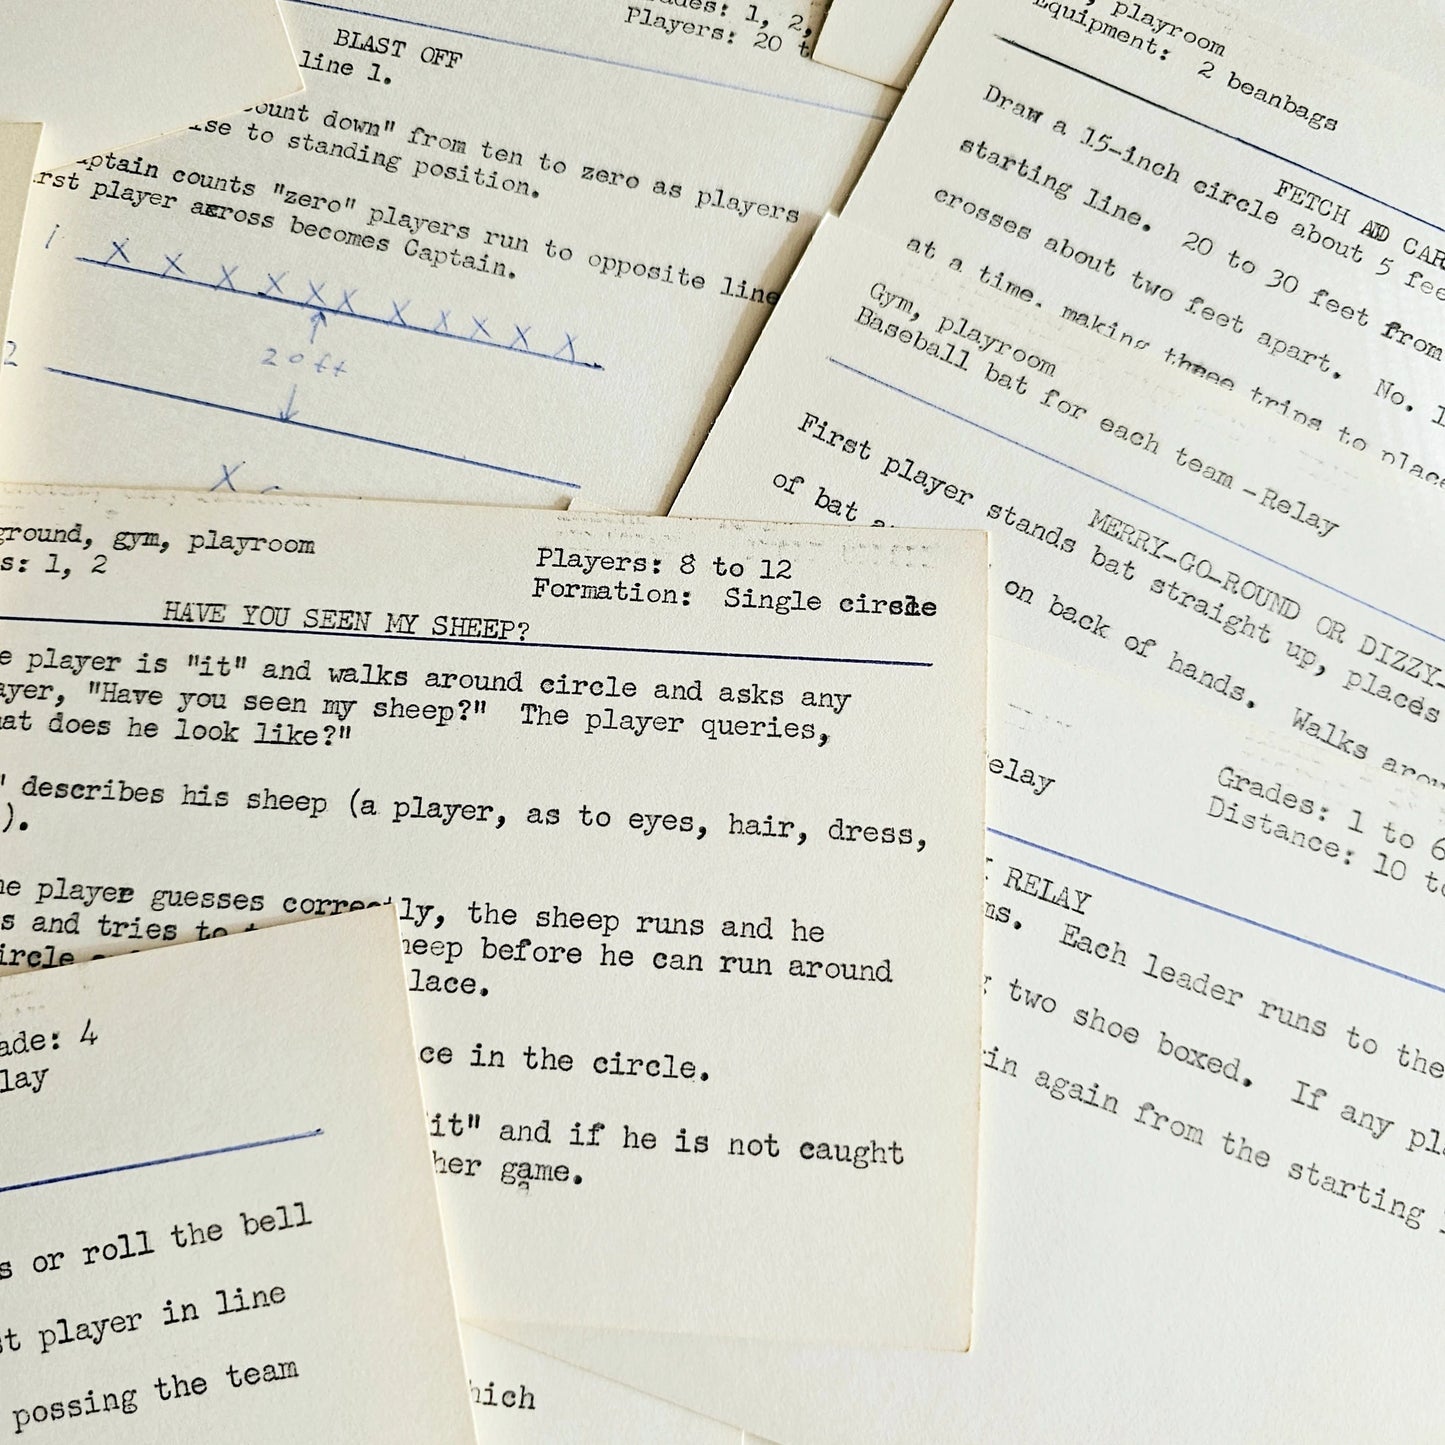 BLAST OFF
line 1.
ount down" from ten to zero as players
ise to standing position.
aptain counts "zero" players run to opposite line
rst player across becomes Captain.
1
X X X X X X X X X X X
20 ft
2
X
Players: 20 t
playroom
Equipment: 2 beanbags
FETCH AND CAR
Draw a 15-inch circle about 5 fee
starting line. 20 to 30 feet from
crosses about two feet apart. No. 1
at a time. making three trips to place
Gym, playroom
Baseball bat for each team -Relay
MERRY-GO-ROUND OR DIZZY-
First player stands bat straight up, places
of bat
on back of hands. Walks arou
ground, gym, playroom
s: 1, 2
Players: 8 to 12
Formation: Single circle
HAVE YOU SEEN MY SHEEP?
e player is "it" and walks around circle and asks any
ayer, "Have you seen my sheep?" The player queries,
hat does he look like?"
" describes his sheep (a player, as to eyes, hair, dress,
).
he player guesses correctly, the sheep runs and he
s and tries to t
heep before he can run around
ircle
lace.
ce in the circle.
it" and if he is not caught
her game.
a
elay
Grades: 1 to 6
Distance: 10 to
RELAY
ms. Each leader runs to the
g two shoe boxed. If any pl
in again from the starting
ade: 4
lay
s or roll the bell
st player in line
possing the team
hich